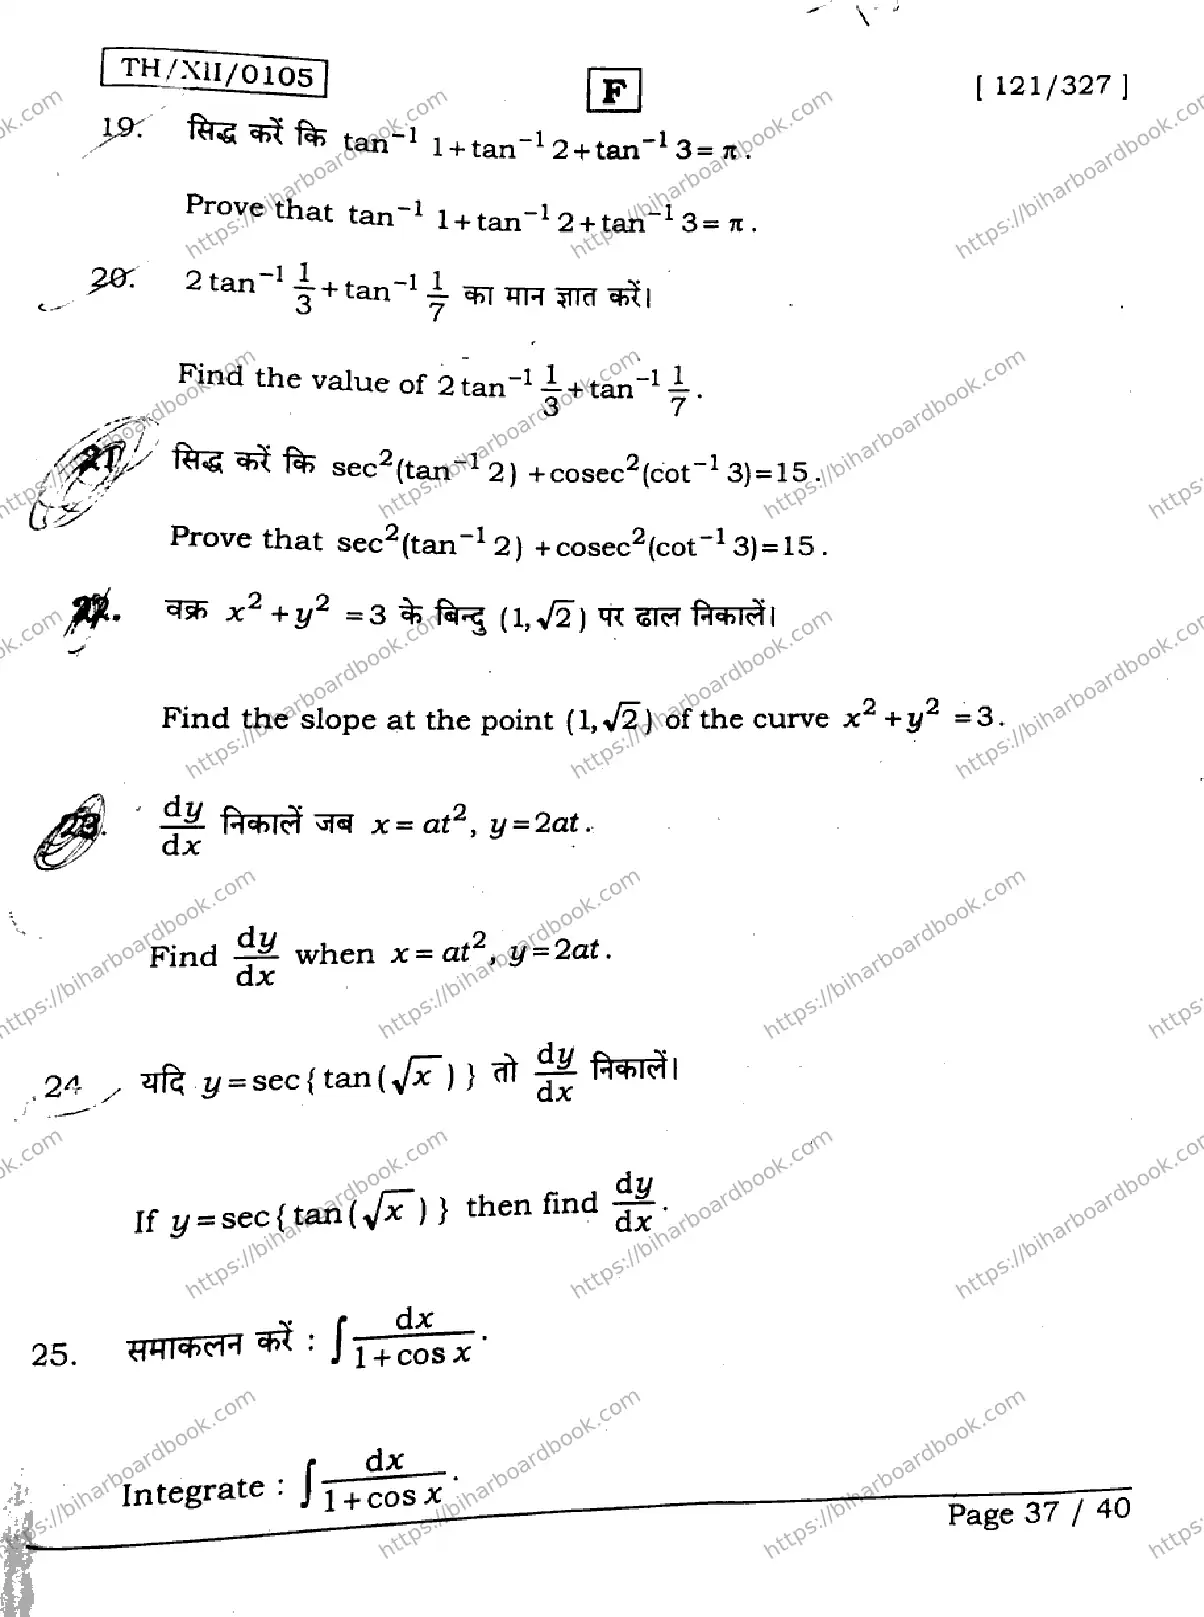 TH/XII/0105
F
[ 121/327 ]
19. सिद्ध करें कि tan⁻¹ 1+tan⁻¹ 2+tan⁻¹ 3= π.
Prove that tan⁻¹ 1+tan⁻¹ 2+tan⁻¹ 3= π.
20. 2 tan⁻¹ 1/3 + tan⁻¹ 1/7 का मान ज्ञात करें।
Find the value of 2 tan⁻¹ 1/3 + tan⁻¹ 1/7.
21. सिद्ध करें कि sec²(tan⁻¹ 2) +cosec²(cot⁻¹ 3)=15.
Prove that sec²(tan⁻¹ 2) +cosec²(cot⁻¹ 3)=15.
22. वक्र x²+y² =3 के बिन्दु (1,√2) पर ढाल निकालें।
Find the slope at the point (1,√2) of the curve x²+y² =3.
23. dy/dx निकालें जब x= at², y=2at.
Find dy/dx when x= at², y=2at.
24 यदि y=sec{tan(√x)} तो dy/dx निकालें।
If y=sec{tan(√x)} then find dy/dx.
25. समाकलन करें : ∫ dx/(1+cos x).
Integrate : ∫ dx/(1+cos x).
Page 37 / 40
https://biharboardbook.com